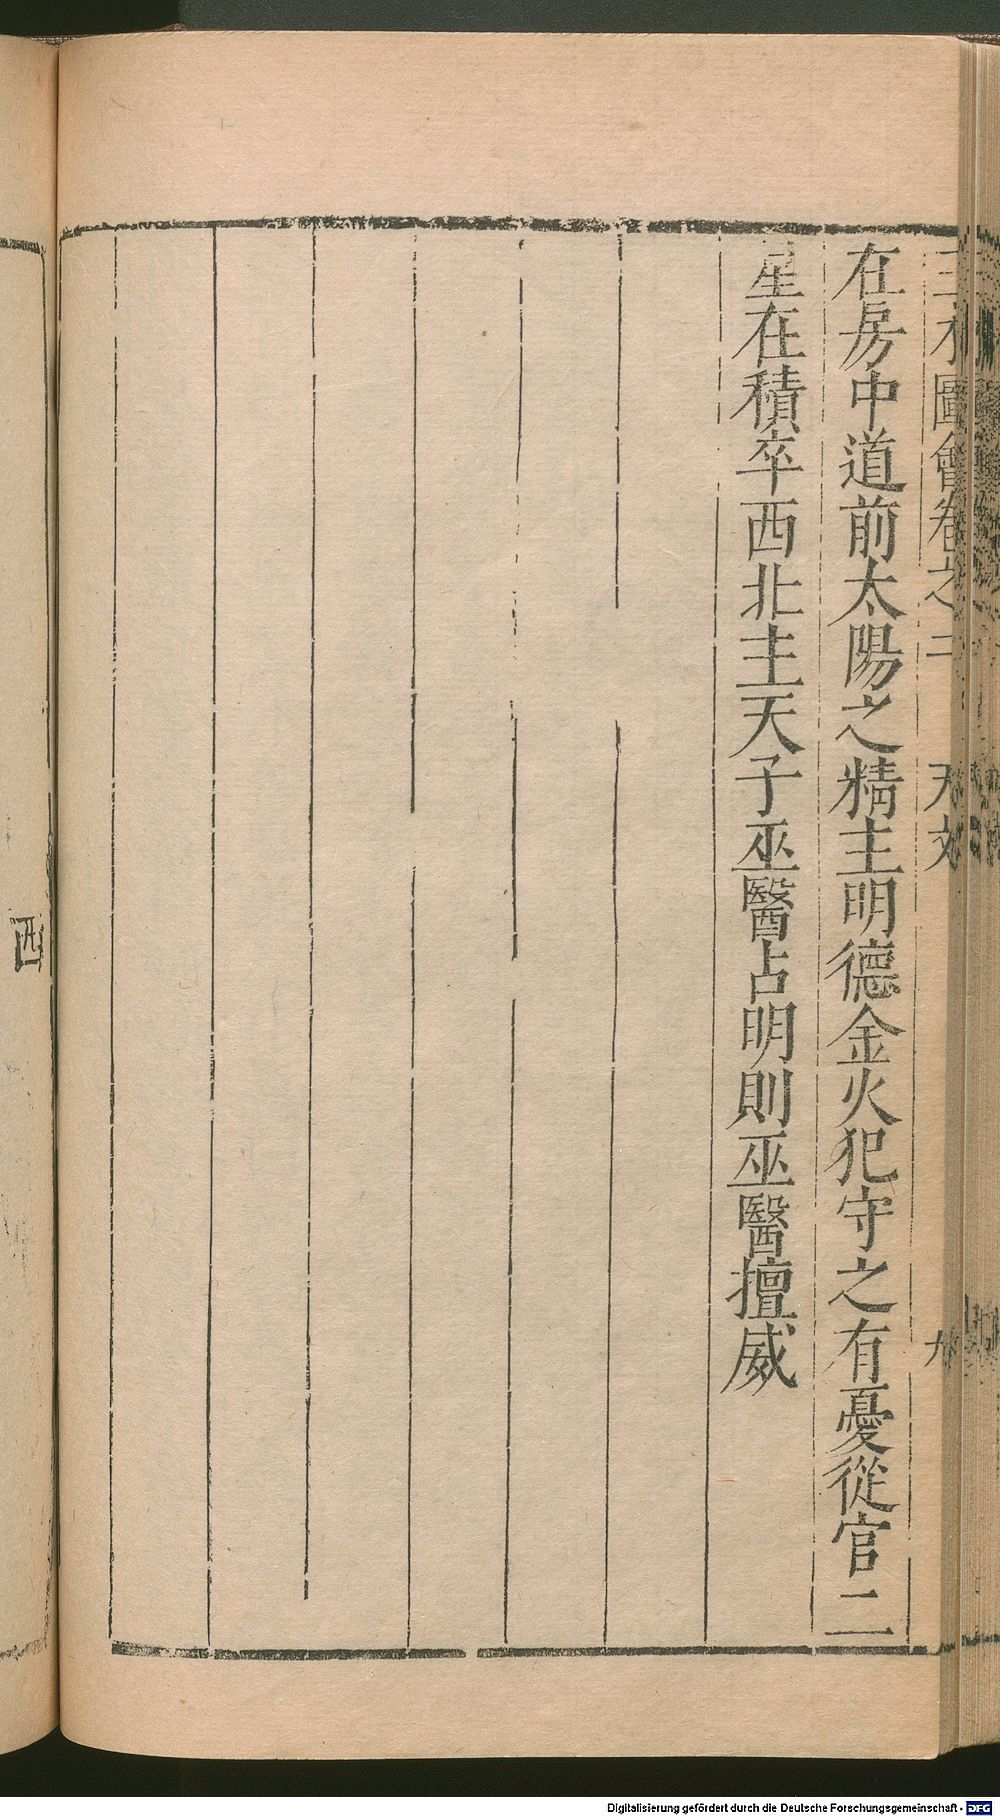 三才圖會卷之二 天文 九
在房中道前太陽之精主明德金火犯守之有憂從官二
星在積卒西北主天子巫醫占明則巫醫擅威
Digitalisierung gefördert durch die Deutsche Forschungsgemeinschaft - DFG